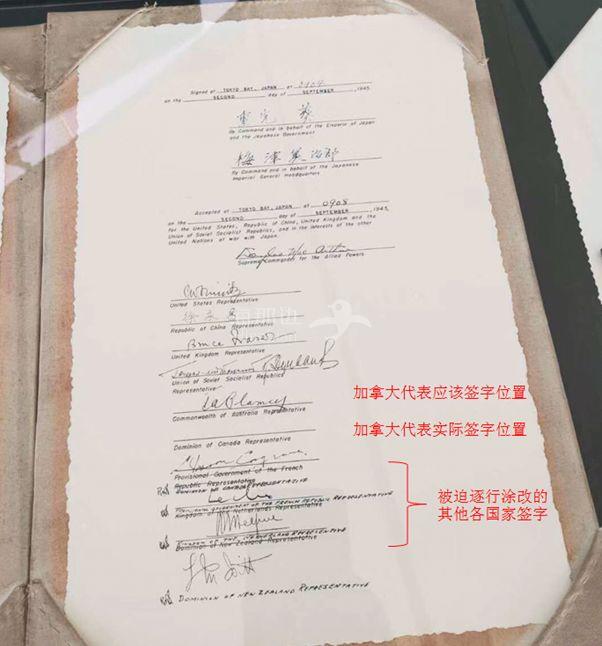 Signed at TOKYO BAY, JAPAN at 0904
on the SECOND day of SEPTEMBER, 1945.
重光葵
By Command and in behalf of the Emperor of Japan
and the Japanese Government
梅津美治郎
By Command and in behalf of the Japanese
Imperial General Headquarters
Accepted at TOKYO BAY, JAPAN at 0908
on the SECOND day of SEPTEMBER, 1945,
for the United States, Republic of China, United Kingdom and the
Union of Soviet Socialist Republics, and in the interests of the other
United Nations at war with Japan.
Douglas MacArthur
Supreme Commander for the Allied Powers
CWNimitz
United States Representative
徐永昌
Republic of China Representative
Bruce Fraser
United Kingdom Representative
Union of Soviet Socialist Republics
Representative
Blamey
Commonwealth of Australia Representative
加拿大代表应该签字位置
Dominion of Canada Representative
加拿大代表实际签字位置
Cosgrave
Provisional Government of the French
Republic Representative
DOMINION OF CANADA REPRESENTATIVE
PROVISIONAL GOVERNMENT OF THE FRENCH REPUBLIC REPRESENTATIVE
Kingdom of the Netherlands Representative
KINGDOM OF THE NETHERLAND REPRESENTATIVE
Dominion of New Zealand Representative
DOMINION OF NEW ZEALAND REPRESENTATIVE
被迫逐行涂改的
其他各国家签字